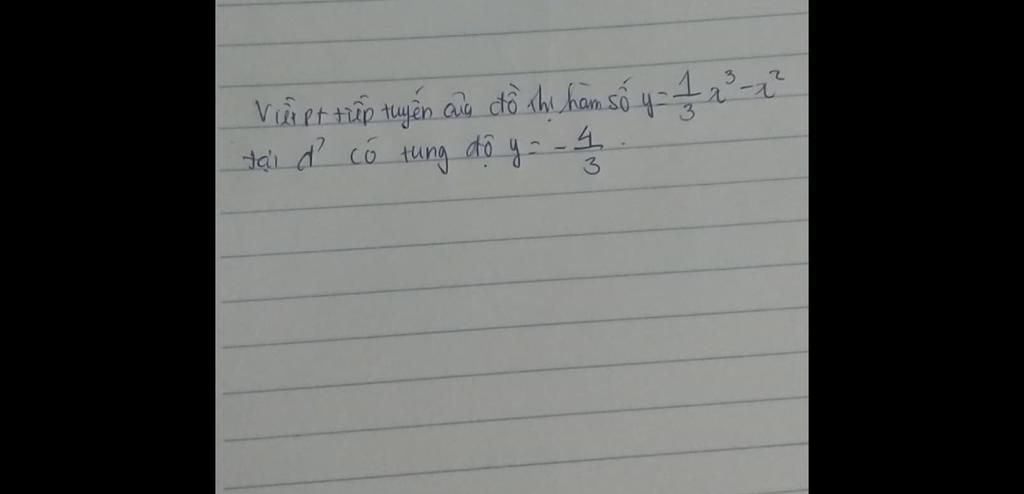 Viết pt tiếp tuyến của đồ thị hàm số y = 1/3 x³ - x²
tại đ' có tung độ y = - 4/3 .